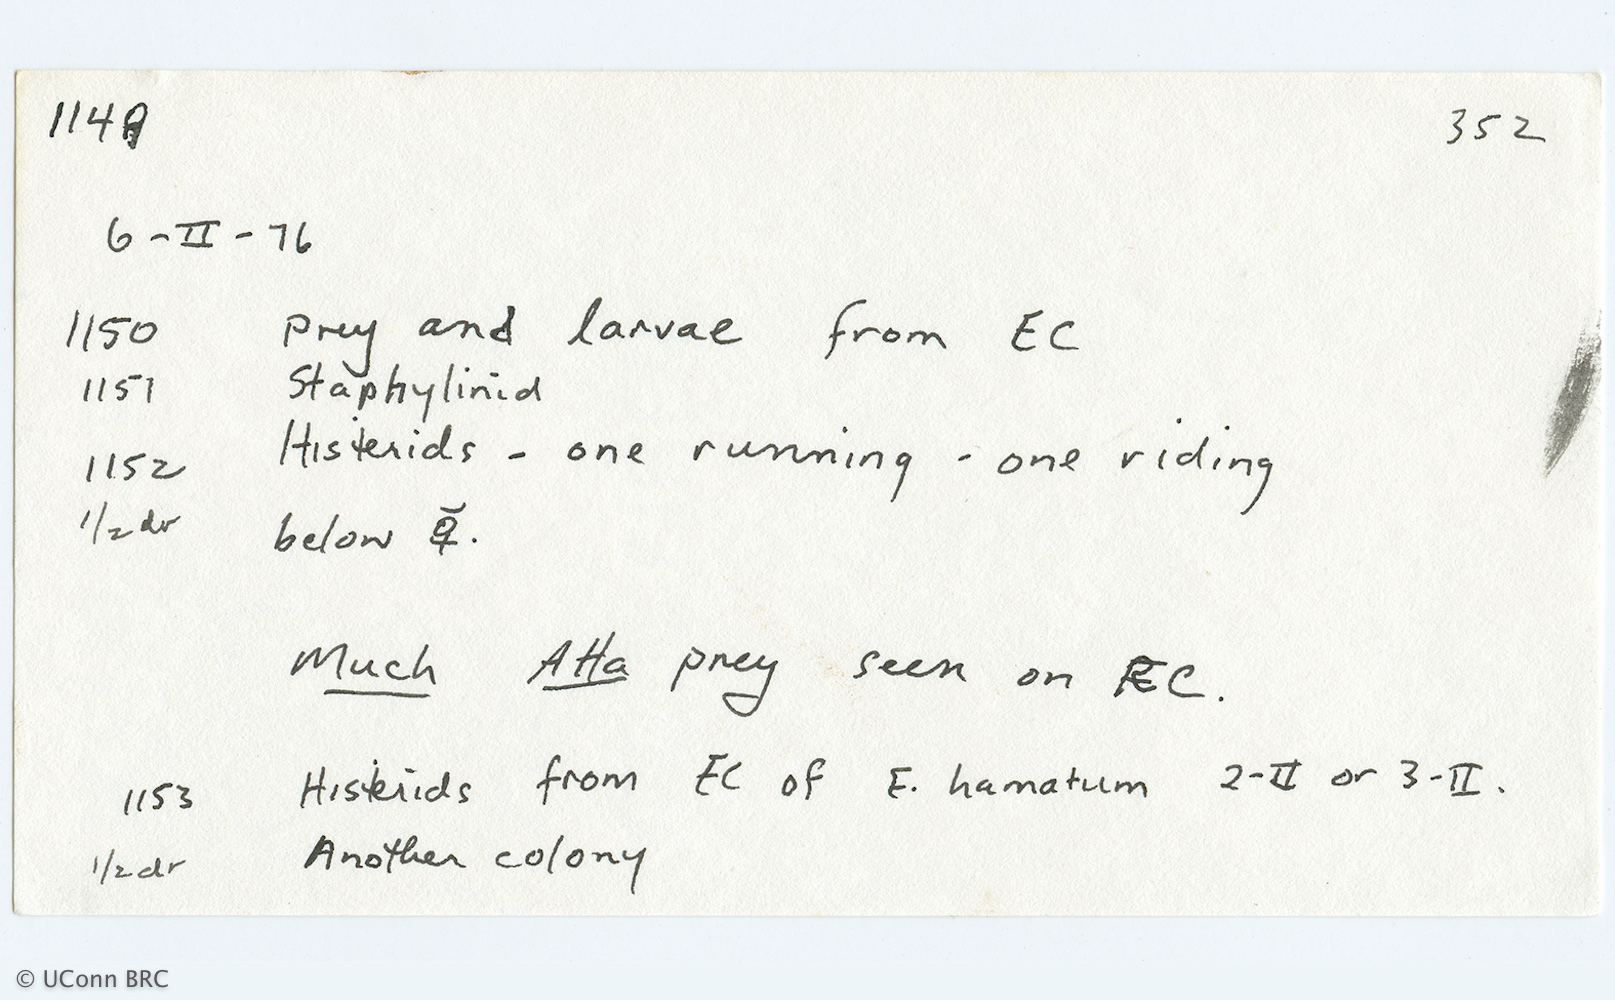 1149 352
6-II-76
1150 prey and larvae from EC
1151 Staphylinid
1152 Histerids - one running - one riding
1/2 dr below ☿̆.
Much Atta prey seen on EC.
1153 Histerids from EC of E. hamatum 2-II or 3-II.
1/2 dr Another colony
© UConn BRC